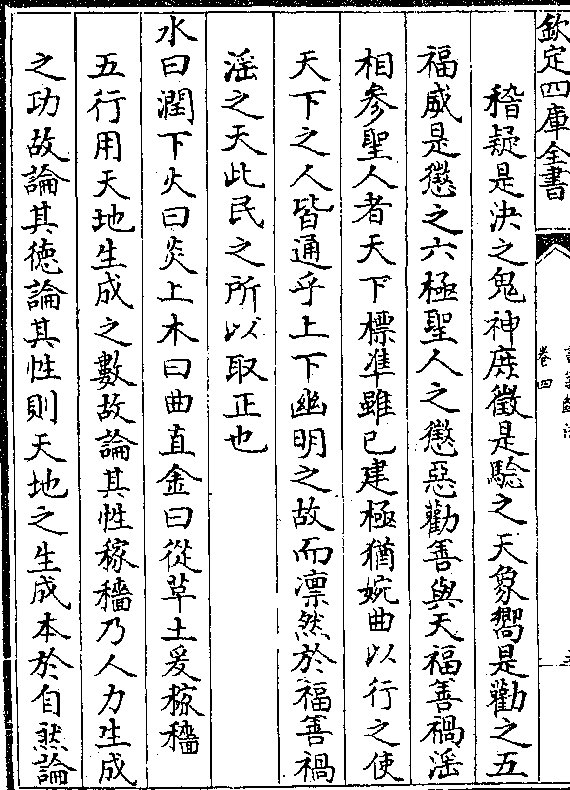 欽定四庫全書
卷四
稽疑是決之鬼神庶徵是驗之天象嚮是勸之五
福威是懲之六極聖人之懲惡勸善與天福善禍淫
相參聖人者天下標準雖已建極猶婉曲以行之使
天下之人皆通乎上下幽明之故而凛然於福善禍
淫之天此民之所以取正也
水曰潤下火曰炎上木曰曲直金曰從革土爰稼穡
五行用天地生成之數故論其性稼穡乃人力生成
之功故論其徳論其性則天地之生成本於自然論